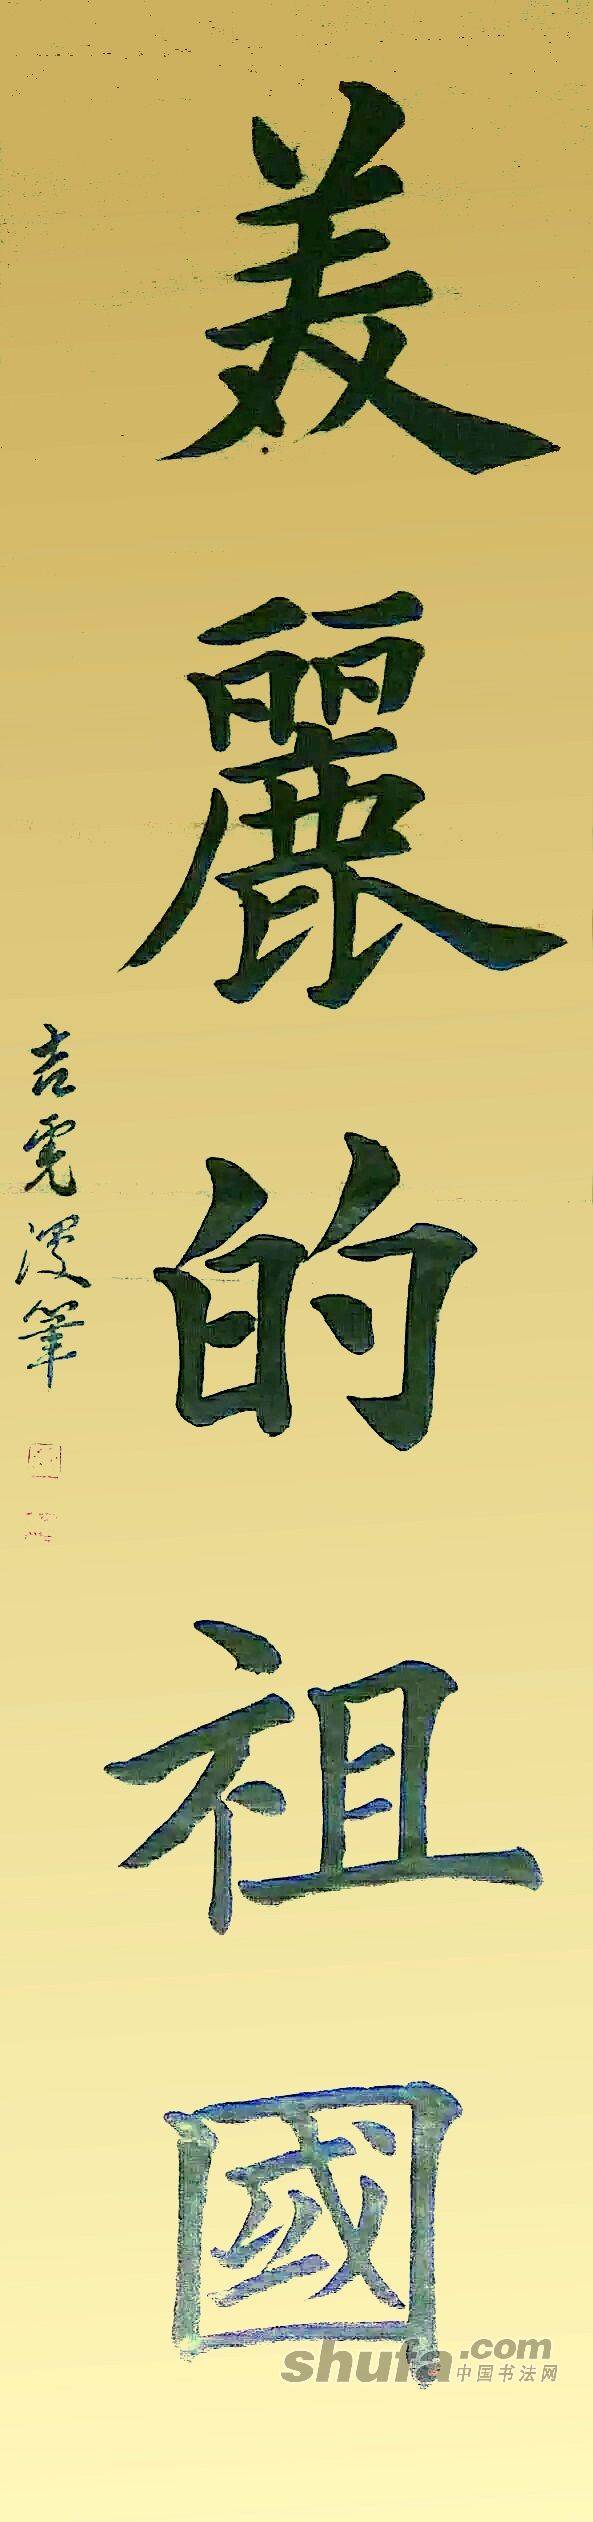 美麗的祖國
吉雲漫筆
shufa.com
中国书法网